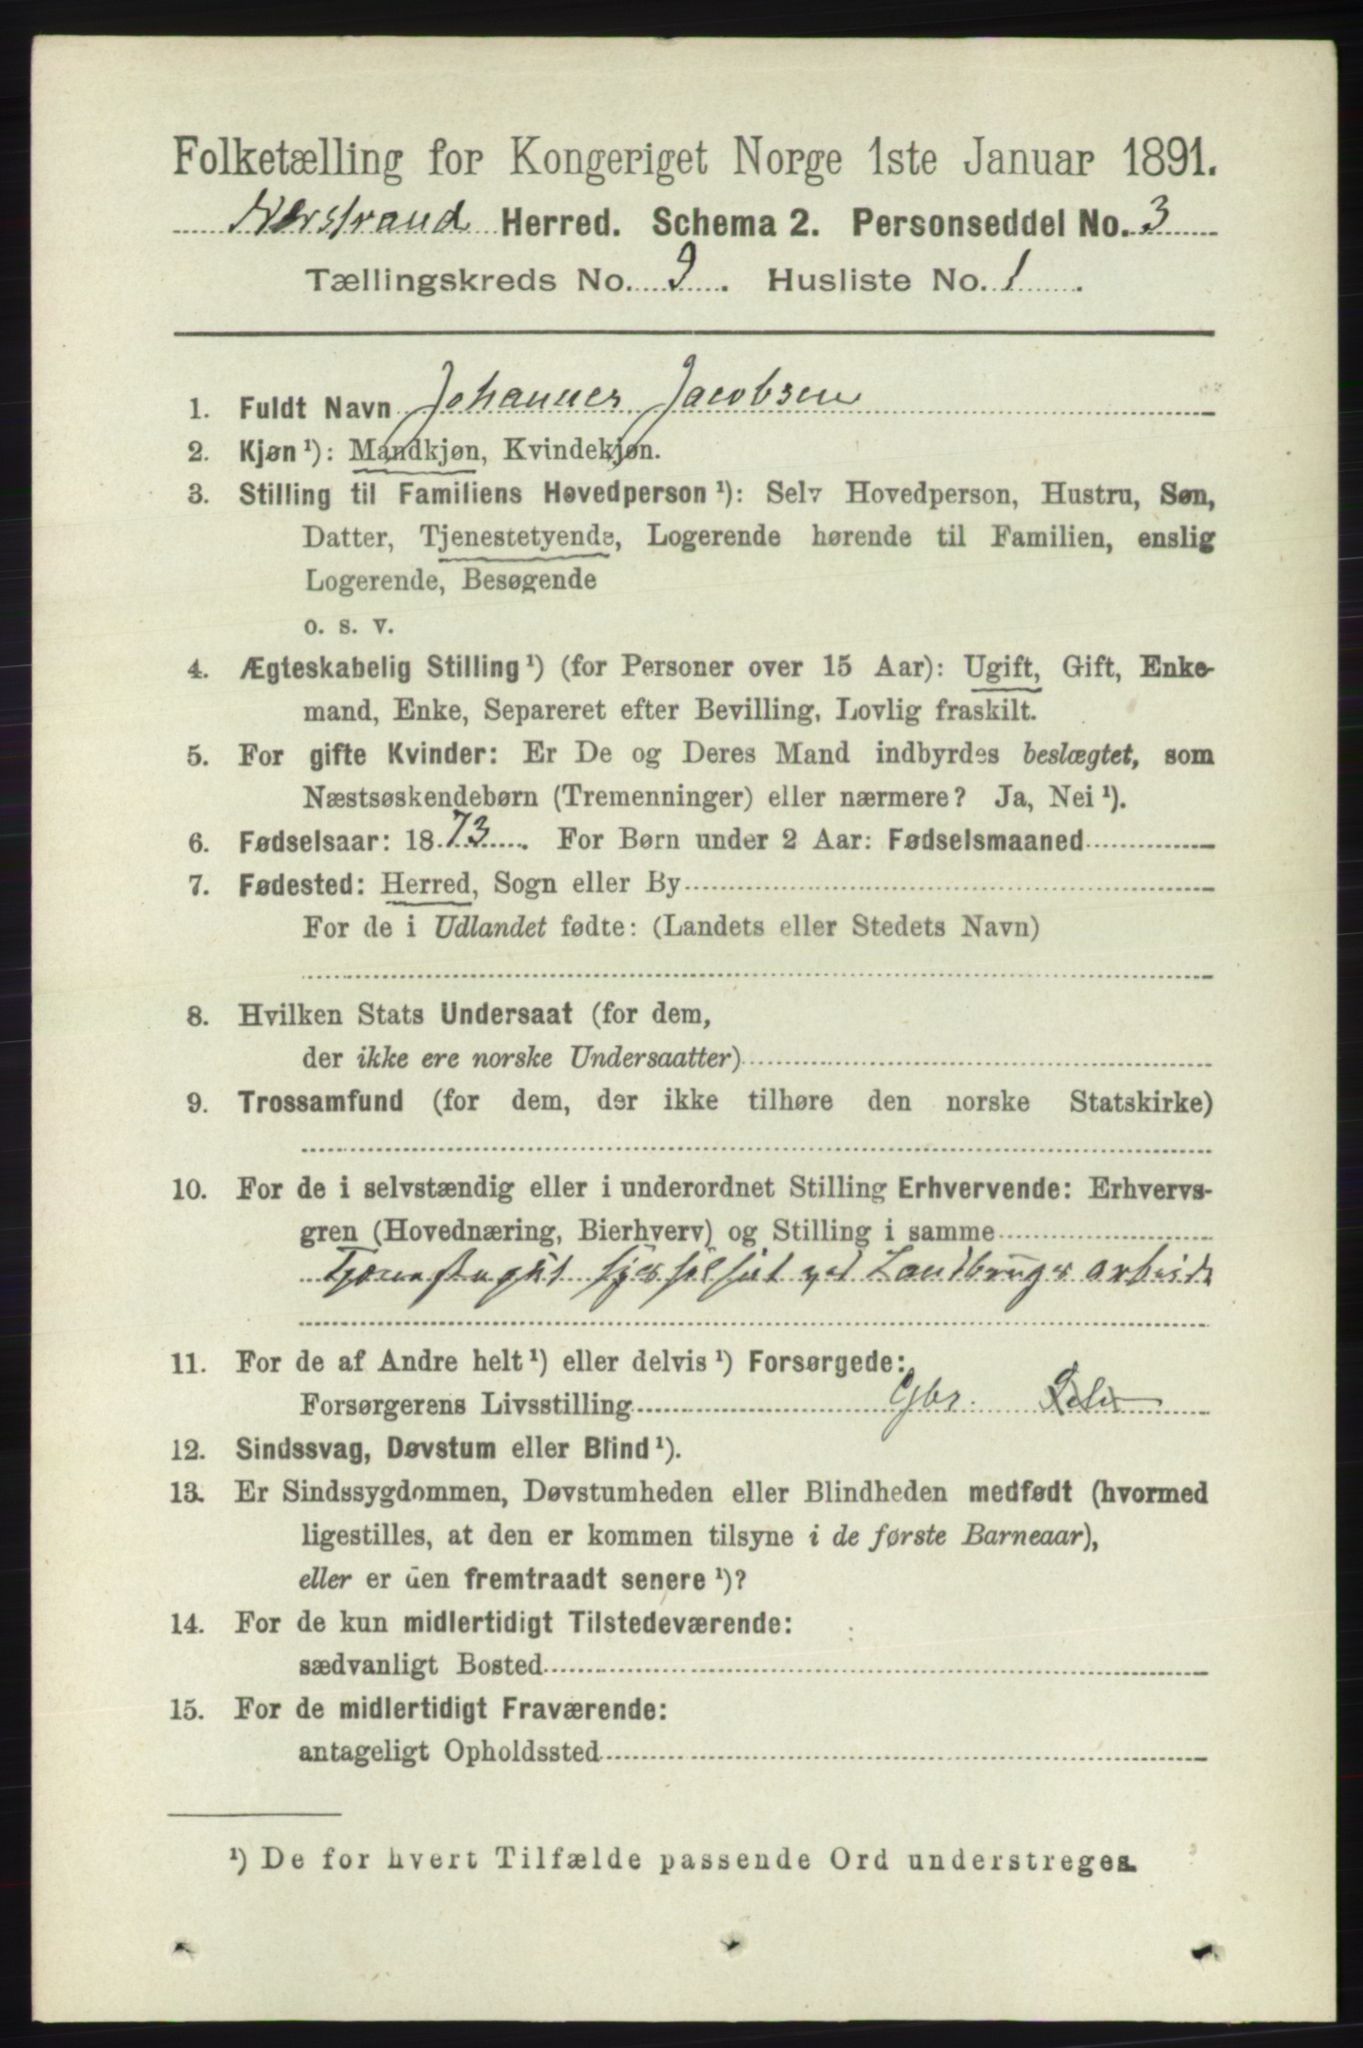 Folketælling for Kongeriget Norge 1ste Januar 1891.
Nerstrand Herred. Schema 2. Personseddel No. 3
Tællingskreds No. 9. Husliste No. 1.
1. Fuldt Navn Johannes Jacobsen
2. Kjøn ¹): Mandkjøn, Kvindekjøn.
3. Stilling til Familiens Hovedperson ¹): Selv Hovedperson, Hustru, Søn,
Datter, Tjenestetyende, Logerende hørende til Familien, enslig
Logerende, Besøgende
o. s. v.
4. Ægteskabelig Stilling ¹) (for Personer over 15 Aar): Ugift, Gift, Enke-
mand, Enke, Separeret efter Bevilling, Lovlig fraskilt.
5. For gifte Kvinder: Er De og Deres Mand indbyrdes beslægtet, som
Næstsøskendebørn (Tremenninger) eller nærmere? Ja, Nei ¹).
6. Fødselsaar: 1873. For Børn under 2 Aar: Fødselsmaaned
7. Fødested: Herred, Sogn eller By
For de i Udlandet fødte: (Landets eller Stedets Navn)
8. Hvilken Stats Undersaat (for dem,
der ikke ere norske Undersaatter)
9. Trossamfund (for dem, der ikke tilhøre den norske Statskirke)
10. For de i selvstændig eller i underordnet Stilling Erhvervende: Erhvervs-
gren (Hovednæring, Bierhverv) og Stilling i samme
ved Landbrugs arbeide
11. For de af Andre helt ¹) eller delvis ¹) Forsørgede:
Forsørgerens Livsstilling Gbr.
12. Sindssvag, Døvstum eller Blind ¹).
13. Er Sindssygdommen, Døvstumheden eller Blindheden medfødt (hvormed
ligestilles, at den er kommen tilsyne i de første Barneaar),
eller er den fremtraadt senere ¹)?
14. For de kun midlertidigt Tilstedeværende:
sædvanligt Bosted
15. For de midlertidigt Fraværende:
antageligt Opholdssted
¹) De for hvert Tilfælde passende Ord understreges.